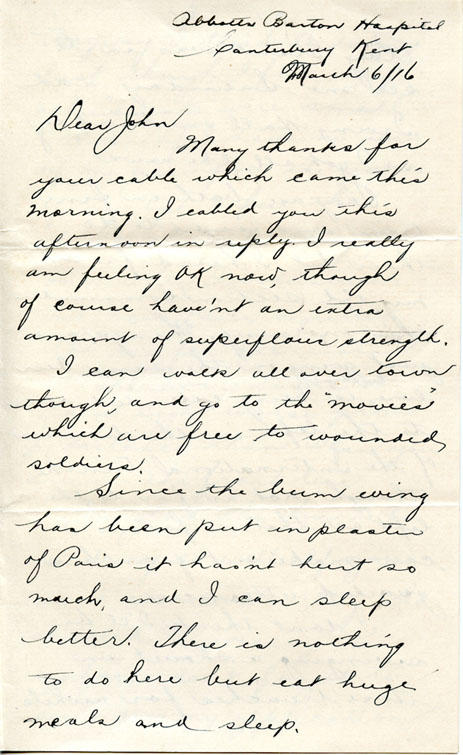 Abbotts Barton Hospital
Canterbury Kent
March 6/16
Dear John
Many thanks for
your cable which came this
morning. I cabled you this
afternoon in reply. I really
am feeling OK now, though
of course have'nt an extra
amount of superflous strength.
I can walk all over town
though, and go to the "movies"
which are free to wounded
soldiers.
Since the bum wing
has been put in plaster
of Paris it has'nt hurt so
much, and I can sleep
better. There is nothing
to do here but eat huge
meals and sleep.